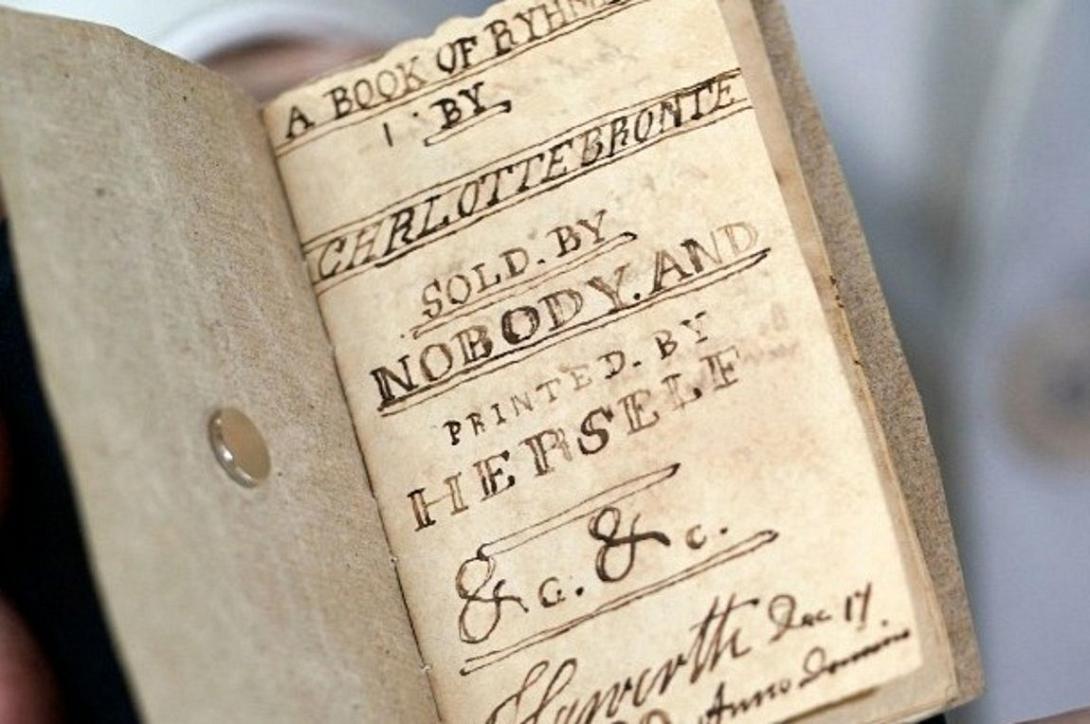 A BOOK OF RYHM
BY
CHARLOTTE BRONTE
SOLD. BY
NOBODY. AND
PRINTED. BY
HERSELF
&c. &c.
Haworth Dec 17.
Anno Domini